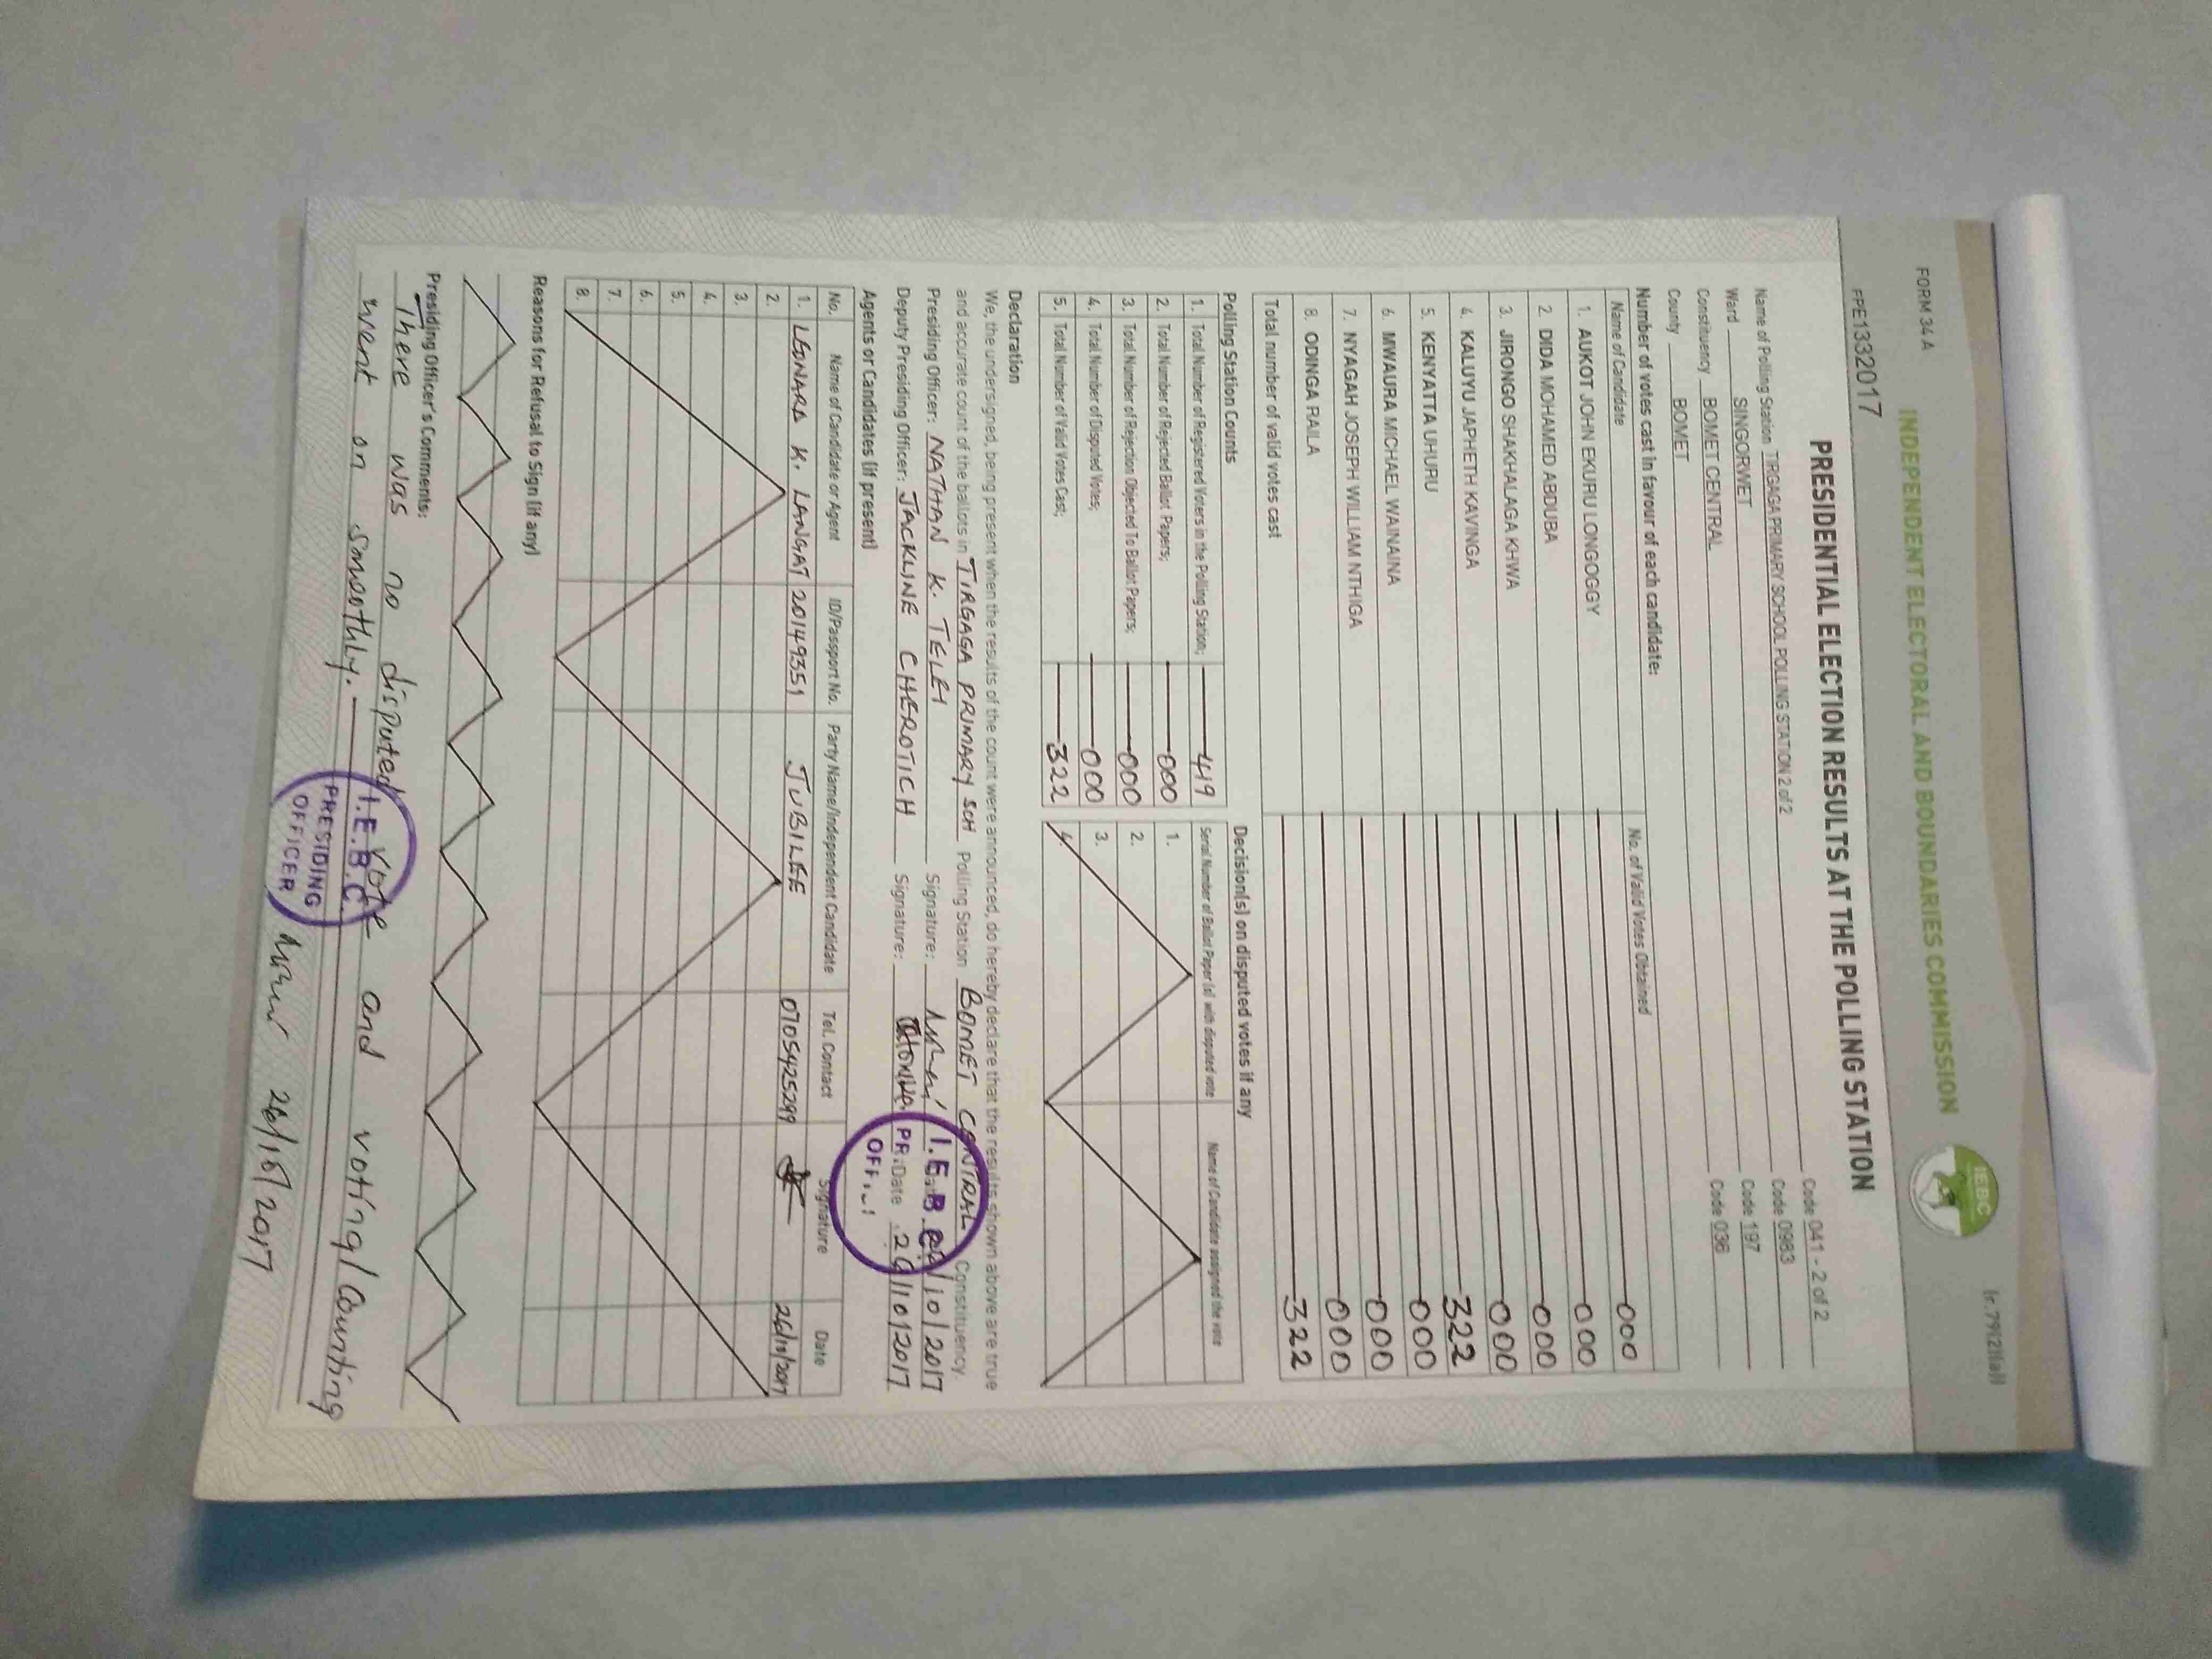 FORM 34 A
INDEPENDENT ELECTORAL AND BOUNDARIES COMMISSION
IEBC
FPE1332017
PRESIDENTIAL ELECTION RESULTS AT THE POLLING STATION
Name of Polling Station TIRGAGA PRIMARY SCHOOL POLLING STATION 2 of 2 Code 041 - 2 of 2
Ward SINGORWET Code 0983
Constituency BOMET CENTRAL Code 197
County BOMET Code 036
Number of votes cast in favour of each candidate:
Name of Candidate No. of Valid Votes Obtained
1. AUKOT JOHN EKURU LONGOGGY 000
2. DIDA MOHAMED ABDUBA 000
3. JIRONGO SHAKHALAGA KHWA 000
4. KALUYU JAPHETH KAVINGA 000
5. KENYATTA UHURU 322
6. MWAURA MICHAEL WAINAINA 000
7. NYAGAH JOSEPH WILLIAM NTHIGA 000
8. ODINGA RAILA 000
Total number of valid votes cast 322
Polling Station Counts Decision(s) on disputed votes if any
1. Total Number of Registered Voters in the Polling Station; 419 Serial Number of Ballot Paper (s) with disputed vote Name of Candidate assigned the vote
2. Total Number of Rejected Ballot Papers; 000 1.
3. Total Number of Rejection Objected To Ballot Papers; 000 2.
4. Total Number of Disputed Votes; 000 3.
5. Total Number of Valid Votes Cast; 322 4.
Declaration
We, the undersigned, being present when the results of the count were announced, do hereby declare that the results shown above are true
and accurate count of the ballots in TIRGAGA PRIMARY SCH Polling Station BOMET CENTRAL Constituency.
Presiding Officer: NATHAN K. TELEI Signature: /10/2017
Deputy Presiding Officer: JACKLINE CHEROTICH Signature: Date 26/10/2017
I.E.B.C
Agents or Candidates (if present)
No. Name of Candidate or Agent ID/Passport No. Party Name/Independent Candidate Tel. Contact Signature Date
1. LEONARD K. LANGAT 20149351 JUBILEE 0705425299 26/10/2017
2.
3.
4.
5.
6.
7.
8.
Reasons for Refusal to Sign (if any)
Presiding Officer's Comments:
There was no disputed vote and voting/counting
went on smoothly.
I.E.B.C.
PRESIDING
OFFICER
26/10/2017